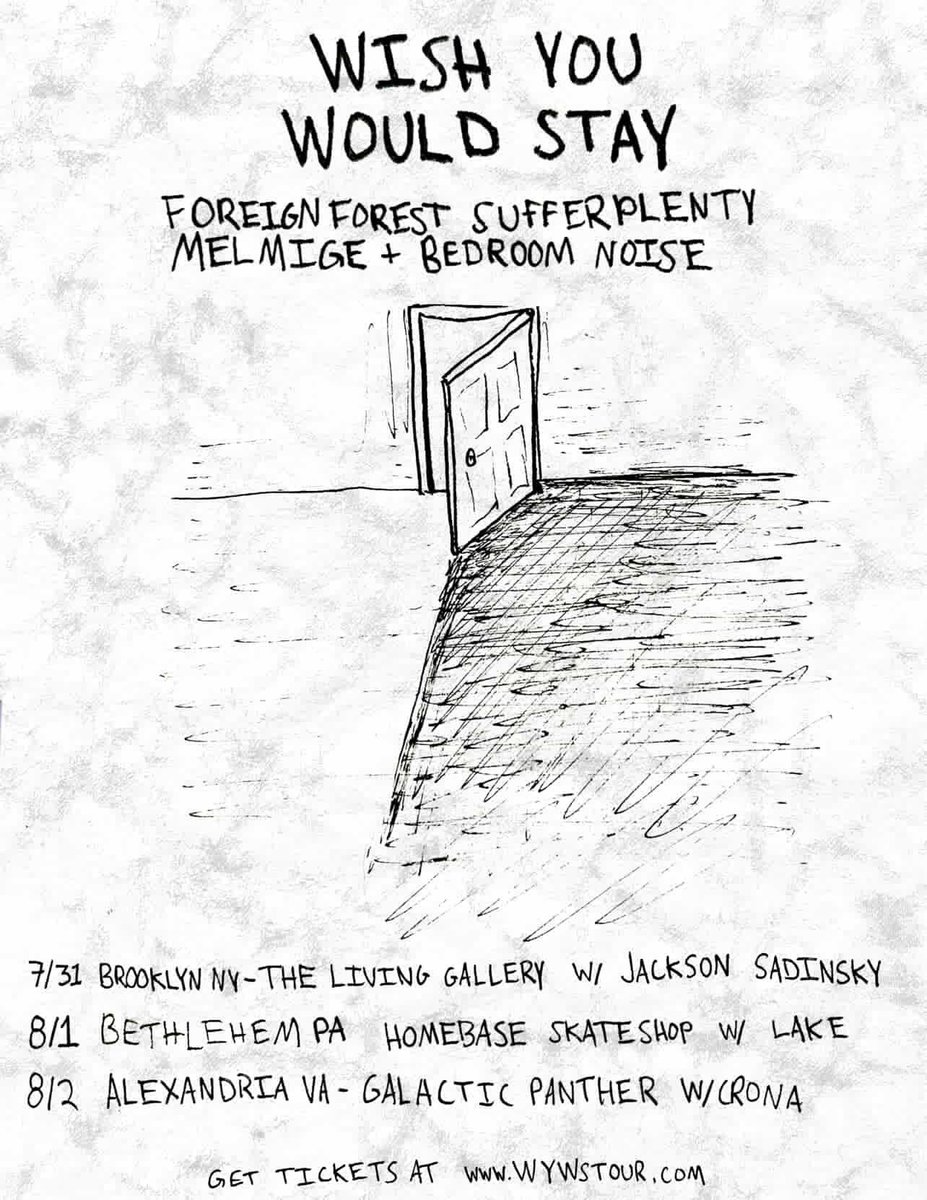 WISH YOU
WOULD STAY
FOREIGN FOREST SUFFERPLENTY
MELMIGE + BEDROOM NOISE
7/31 BROOKLYN NY - THE LIVING GALLERY W/ JACKSON SADINSKY
8/1 BETHLEHEM PA HOMEBASE SKATESHOP W/ LAKE
8/2 ALEXANDRIA VA - GALACTIC PANTHER W/CRONA
GET TICKETS AT www.WYWSTOUR.com